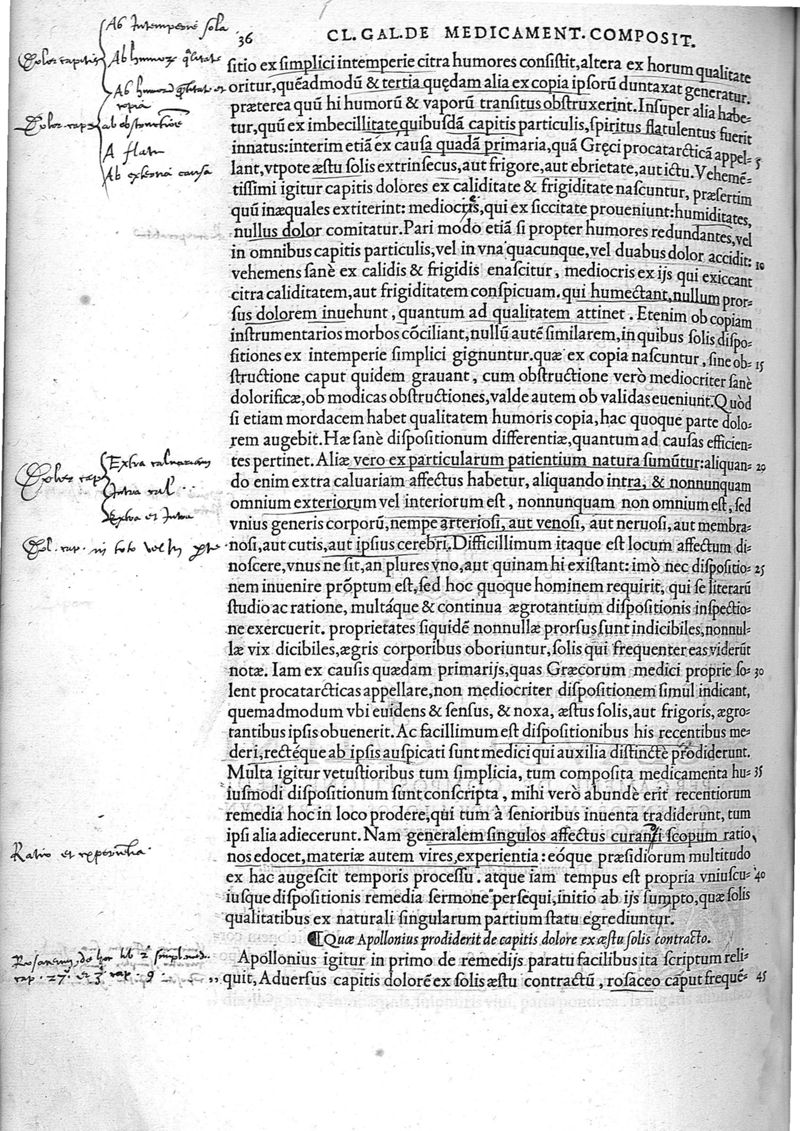 36
CL. GAL. DE MEDICAMENT. COMPOSIT.
Ab Intemperie sola
Dolor capitis
Ab humore qualitate
Ab obstructione
A flatu
Ab externa causa
sitio ex simplici intemperie citra humores consistit, altera ex horum qualitate
oritur, quẽadmodũ & tertia quędam alia ex copia ipsorũ duntaxat generatur.
præterea quũ hi humorũ & vaporũ transitus obstruxerint. Insuper alia habe-
tur, quũ ex imbecillitate quibusdã capitis particulis, spiritus flatulentus fuerit
innatus: interim etiã ex causa quadã primaria, quã Gręci procatarcticã appel-
lant, vtpote æstu solis extrinsecus, aut frigore, aut ebrietate, aut ictu. Vehemẽ- 5
tissimi igitur capitis dolores ex caliditate & frigiditate nascuntur, præsertim
quũ inæquales extiterint: mediocris, qui ex siccitate proueniunt: humiditates,
nullus dolor comitatur. Pari modo etiã si propter humores redundantes, vel
in omnibus capitis particulis, vel in vna quacunque, vel duabus dolor accidit: 10
vehemens sanè ex calidis & frigidis enascitur, mediocris ex ijs qui exiccant
citra caliditatem, aut frigiditatem conspicuam. qui humectant, nullum pror-
sus dolorem inuehunt, quantum ad qualitatem attinet. Etenim ob copiam
instrumentarios morbos cõciliant, nullũ autẽ similarem, in quibus solis dispo-
sitiones ex intemperie simplici gignuntur. quæ ex copia nascuntur, sine ob- 15
structione caput quidem grauant, cum obstructione verò mediocriter sanè
dolorificæ, ob modicas obstructiones, valde autem ob validas eueniunt. Quòd
si etiam mordacem habet qualitatem humoris copia, hac quoque parte dolo-
rem augebit. Hæ sanè dispositionum differentiæ, quantum ad causas efficien-
tes pertinet. Aliæ vero ex particularum patientium natura sumũtur: aliquan- 20
do enim extra caluariam affectus habetur, aliquando intra, & nonnunquam
omnium exteriorum vel interiorum est, nonnunquam non omnium est, sed
vnius generis corporũ, nempe arteriosi, aut venosi, aut neruosi, aut membra-
nosi, aut cutis, aut ipsius cerebri. Difficillimum itaque est locum affectum di-
noscere, vnus ne sit, an plures vno, aut quinam hi existant: imò nec dispositio- 25
nem inuenire prõptum est, sed hoc quoque hominem requirit, qui se literarũ
studio ac ratione, multáque & continua ægrotantium dispositionis inspectio-
ne exercuerit. proprietates siquidẽ nonnullæ prorsus sunt indicibiles, nonnul-
læ vix dicibiles, ægris corporibus oboriuntur, solis qui frequenter eas viderũt
notæ. Iam ex causis quædam primarijs, quas Græcorum medici proprie so- 30
lent procatarcticas appellare, non mediocriter dispositionem simul indicant,
quemadmodum vbi euidens & sensus, & noxa, æstus solis, aut frigoris, ægro-
tantibus ipsis obuenerit. Ac facillimum est dispositionibus his recentibus me-
deri, rectéque ab ipsis auspicati sunt medici qui auxilia distinctè prodiderunt.
Multa igitur vetustioribus tum simplicia, tum composita medicamenta hu- 35
iusmodi dispositionum sunt conscripta, mihi verò abundè erit recentiorum
remedia hoc in loco prodere, qui tum à senioribus inuenta tradiderunt, tum
ipsi alia adiecerunt. Nam generalem singulos affectus curandi scopum ratio
nos edocet, materiæ autem vires, experientia: eóque præsidiorum multitudo
ex hac augescit temporis processu. atque iam tempus est propria vniuscu- 40
iusque dispositionis remedia sermone persequi, initio ab ijs sumpto, quæ solis
qualitatibus ex naturali singularum partium statu egrediuntur.
Quæ Apollonius prodiderit de capitis dolore ex æstu solis contracto.
Apollonius igitur in primo de remedijs paratu facilibus ita scriptum reli-
„ quit, Aduersus capitis dolorẽ ex solis æstu contractũ, rosaceo caput frequẽ- 45
Extra calvariam
Intra cal
Extra et Intra
in toto vel in pte
Ratio et experientia